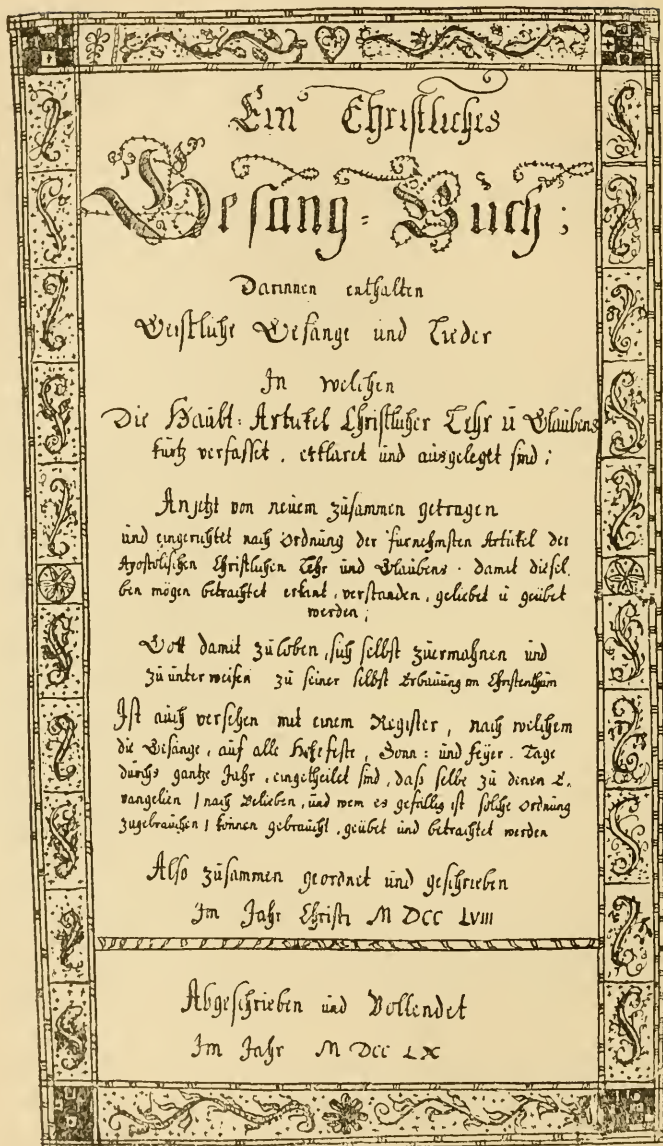 Ein Christliches
Gesang = Buch ;
Darinnen enthalten
Geistliche Gesänge und Lieder
In welchen
Die Haubt = Artickel Christlicher Lehr ū Glaubens
kurtz verfasset , erklaret und ausgeleget sind ;
An jetzt von neuem zusammen getragen
und eingerichtet nach Ordnung der furnehmsten Artickel der
Apostolischen Christlichen Lehr und Glaubens . damit diesel
ben mögen betrachtet erkant , verstanden , geliebet ū geübet
werden ;
Gott damit zu loben , sich selbst zuermahnen und
zu unter weisen zu seiner selbst Erbauung im Christenthum
Ist auch versehen mit einem Register , nach welchem
die Gesänge , auf alle Hohe feste , Sonn = und feyer = Tage
durchs gantze Jahr , eingetheilet sind , daß selbe zu denen E-
vangelien / nach Belieben , und wem es gefällig ist solche Ordnung
zugebrauchen / können gebraucht , geübet und betrachtet werden
Also zusammen geordnet und geschrieben
Im Jahr Christi M DCC LVIII
Abgeschrieben und Vollendet
Im Jahr M DCC LX